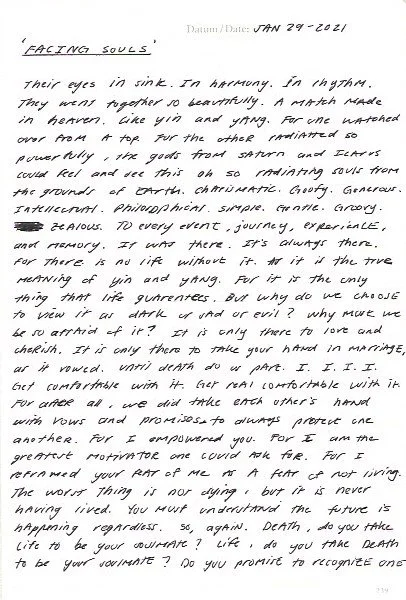 Datum / Date: JAN 29 - 2021
'FACING SOULS'
Their eyes in sink. In harmony. In rhythm.
They went together so beautifully. A match made
in heaven. Like yin and yang. For one watched
over from a top. For the other radiatted so
powerfully, the gods from Saturn and Icarus
could feel and see this oh so radiating souls from
the grounds of Earth. Charismatic. Goofy. Generous.
Intellectual. Philosophical. Simple. Gentle. Groovy.
Zealous. To every event, journey, experience,
and memory. It was there. It's always there.
For there is no life without it. As it is the true
meaning of yin and yang. For it is the only
thing that life guarentees. But why do we choose
to view it as dark or sad or evil? Why must we
be so affraid of it? It is only there to love and
cherish. It is only there to take your hand in marriage,
as it vowed. Until death do us part. I. I. I. I.
Get comfortable with it. Get real comfortable with it.
For after all, we did take each other's hand
with vows and promises to always protect one
another. For I empowered you. For I am the
greatest motivator one could ask for. For I
reframed your fear of me as a fear of not living.
The worst thing is not dying, but it is never
having lived. You must understand the future is
happening regardless. So, again. Death, do you take
life to be your soulmate? Life, do you take Death
to be your soulmate? Do you promise to recognize one